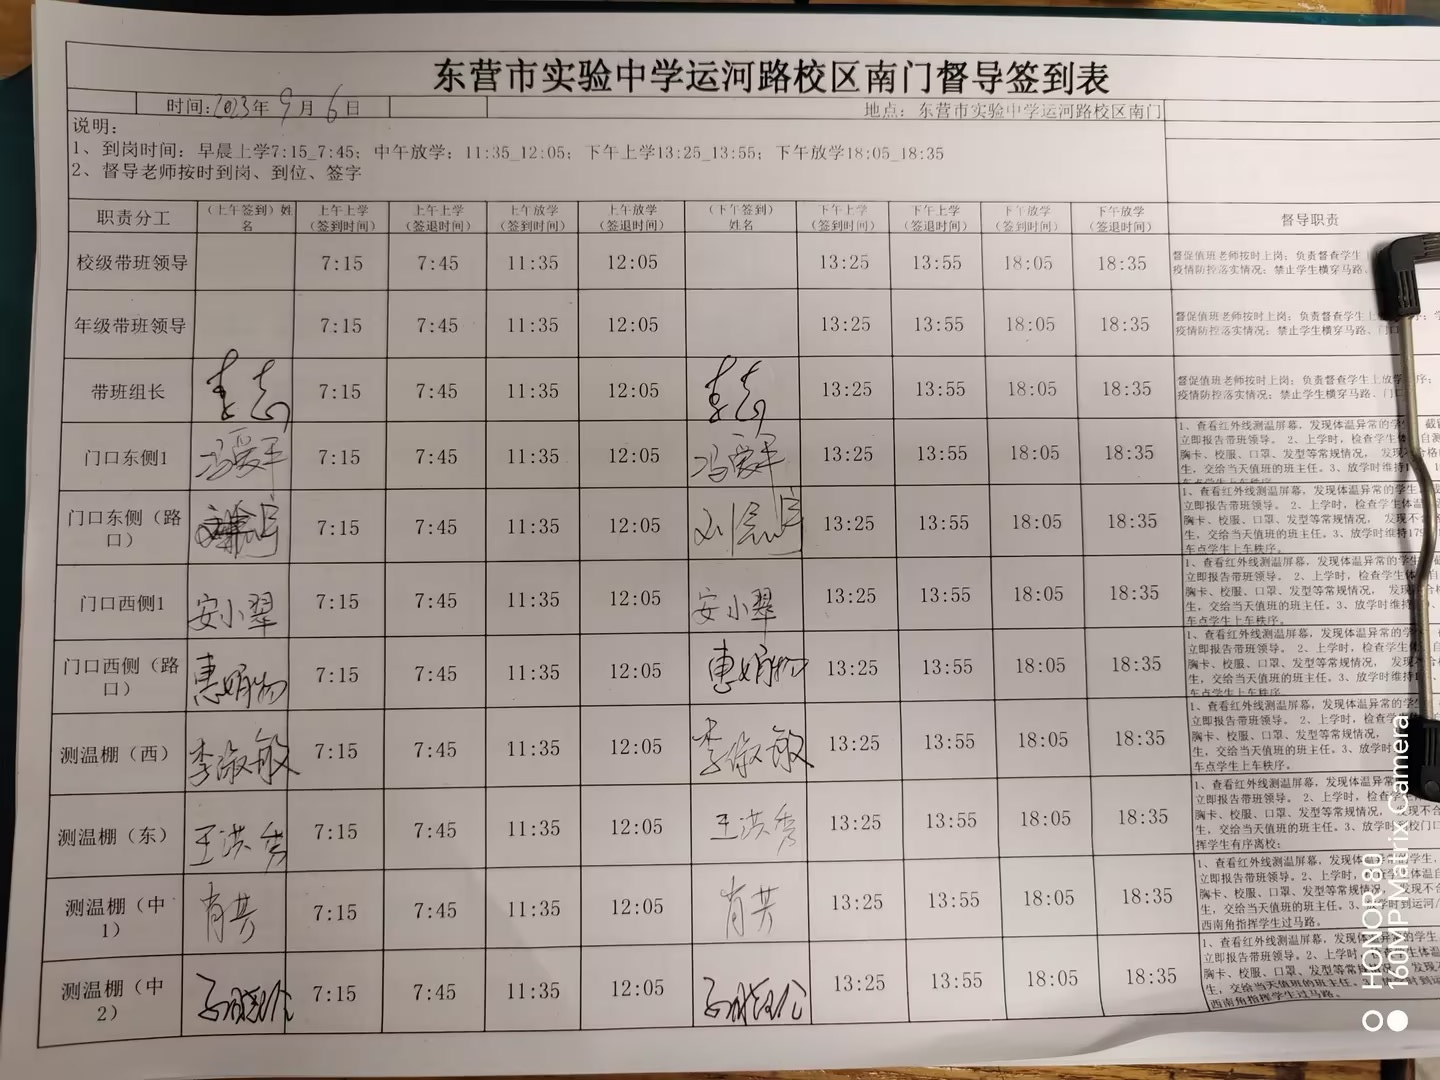 东营市实验中学运河路校区南门督导签到表
时间:2023年9月6日
地点：东营市实验中学运河路校区南门
说明：
1、到岗时间：早晨上学7:15_7:45；中午放学：11:35_12:05；下午上学13:25_13:55；下午放学18:05_18:35
2、督导老师按时到岗、到位、签字
职责分工 （上午签到）姓名 上午上学（签到时间） 上午上学（签退时间） 上午放学（签到时间） 上午放学（签退时间） （下午签到）姓名 下午上学（签到时间） 下午上学（签退时间） 下午放学（签到时间） 下午放学（签退时间） 督导职责
校级带班领导 7:15 7:45 11:35 12:05 13:25 13:55 18:05 18:35
督促值班老师按时上岗；负责督查学生
疫情防控落实情况；禁止学生横穿马路、
年级带班领导 7:15 7:45 11:35 12:05 13:25 13:55 18:05 18:35
督促值班老师按时上岗；负责督查学生上
疫情防控落实情况；禁止学生横穿马路、门口
带班组长 7:15 7:45 11:35 12:05 13:25 13:55 18:05 18:35
督促值班老师按时上岗；负责督查学生上放学 序；
疫情防控落实情况；禁止学生横穿马路、门口
门口东侧1 冯爱平 7:15 7:45 11:35 12:05 冯爱平 13:25 13:55 18:05 18:35
1、查看红外线测温屏幕，发现体温异常的学生
立即报告带班领导。 2、上学时，检查学生
胸卡、校服、口罩、发型等常规情况， 发现
生，交给当天值班的班主任。3、放学时维持
车点学生上车秩序。
门口东侧（路口） 7:15 7:45 11:35 12:05 13:25 13:55 18:05 18:35
1、查看红外线测温屏幕，发现体温异常的学生
立即报告带班领导。 2、上学时，检查学生体
胸卡、校服、口罩、发型等常规情况， 发现不
生，交给当天值班的班主任。3、放学时维持
车点学生上车秩序。
门口西侧1 安小翠 7:15 7:45 11:35 12:05 安小翠 13:25 13:55 18:05 18:35
1、查看红外线测温屏幕，发现体温异常的学生
立即报告带班领导。 2、上学时，检查学生体
胸卡、校服、口罩、发型等常规情况， 发现
生，交给当天值班的班主任。3、放学时维持
车点学生上车秩序。
门口西侧（路口） 7:15 7:45 11:35 12:05 13:25 13:55 18:05 18:35
1、查看红外线测温屏幕，发现体温异常的学生
立即报告带班领导。 2、上学时，检查学生体
胸卡、校服、口罩、发型等常规情况， 发现
生，交给当天值班的班主任。3、放学时维持
车点学生上车秩序。
测温棚（西） 李淑敏 7:15 7:45 11:35 12:05 李淑敏 13:25 13:55 18:05 18:35
1、查看红外线测温屏幕，发现体温异常的学生
立即报告带班领导。 2、上学时，检查学生
胸卡、校服、口罩、发型等常规情况，
生，交给当天值班的班主任。3、放学时
车点学生上车秩序。
测温棚（东） 王洪秀 7:15 7:45 11:35 12:05 王洪秀 13:25 13:55 18:05 18:35
1、查看红外线测温屏幕，发现体温异常的学生
立即报告带班领导。 2、上学时，检查学生
胸卡、校服、口罩、发型等常规情况， 发现不合
生，交给当天值班的班主任。3、放学时 校门口
挥学生有序离校；
测温棚（中1） 肖芸 7:15 7:45 11:35 12:05 肖芸 13:25 13:55 18:05 18:35
1、查看红外线测温屏幕，发现体温异常的学生，
立即报告带班领导。 2、上学时，检查学生体温自
胸卡、校服、口罩、发型等常规情况， 发现不合
生，交给当天值班的班主任。3、放学时到运河
西南角指挥学生过马路。
测温棚（中2） 7:15 7:45 11:35 12:05 13:25 13:55 18:05 18:35
1、查看红外线测温屏幕，发现体温异常的学生
立即报告带班领导。 2、上学时，检查学生
胸卡、校服、口罩、发型等常规情况， 发现
生，交给当天值班的班主任。3、放学时到
西南角指挥学生过马路。
HONOR 80
160MP Matrix Camera